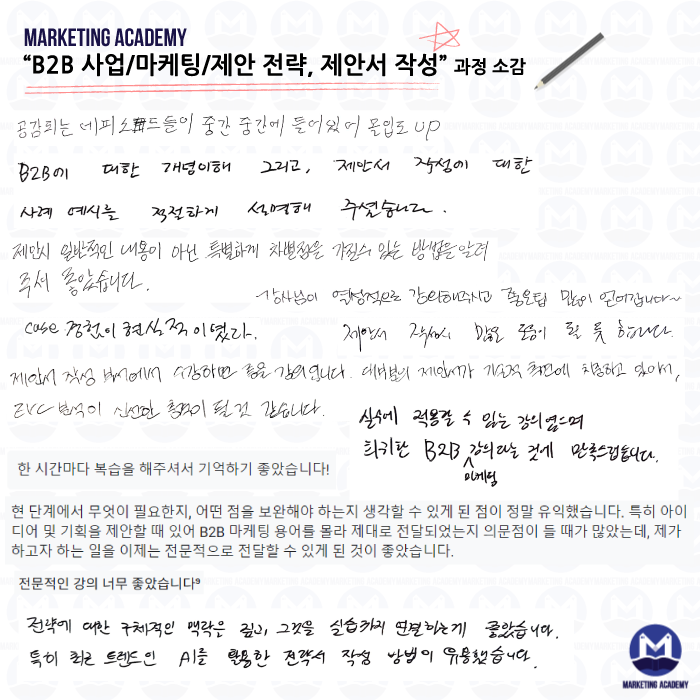 MARKETING ACADEMY
“B2B 사업/마케팅/제안 전략, 제안서 작성” 과정 소감
공감되는 에피소드들이 중간 중간에 들어있어 몰입도 UP
B2B에 대한 개념이해 그리고, 제안서 작성에 대한
사례 예시를 적절하게 설명해 주셨습니다.
제안시 일반적인 내용이 아닌 특별하게 차별점을 가질수 있는 방법을 알려
주셔 좋았습니다.
강사님이 열정적으로 강의해주시고 좋은팁 많이 얻어갑니다~
case 경험이 현실적이였다.
제안서 작성시 많은 도움이 될 듯 합니다.
제안서 작성 부서에서 수강하면 좋을 강의입니다. 대부분의 제안서가 기술적 측면에 치중하고 있어서,
EVC 분석이 신선한 충격이 될 것 같습니다.
실무에 적용할 수 있는 강의였으며
희귀한 B2B 마케팅 강의라는 것에 만족스럽습니다.
한 시간마다 복습을 해주셔서 기억하기 좋았습니다!
현 단계에서 무엇이 필요한지, 어떤 점을 보완해야 하는지 생각할 수 있게 된 점이 정말 유익했습니다. 특히 아이
디어 및 기획을 제안할 때 있어 B2B 마케팅 용어를 몰라 제대로 전달되었는지 의문점이 들 때가 많았는데, 제가
하고자 하는 일을 이제는 전문적으로 전달할 수 있게 된 것이 좋았습니다.
전문적인 강의 너무 좋았습니다⁹
전략에 대한 구체적인 맥락은 짚고, 그것을 실습까지 연결하는게 좋았습니다.
특히 최근 트렌드인 AI를 활용한 전략서 작성 방법이 유용했습니다.
MARKETING ACADEMY